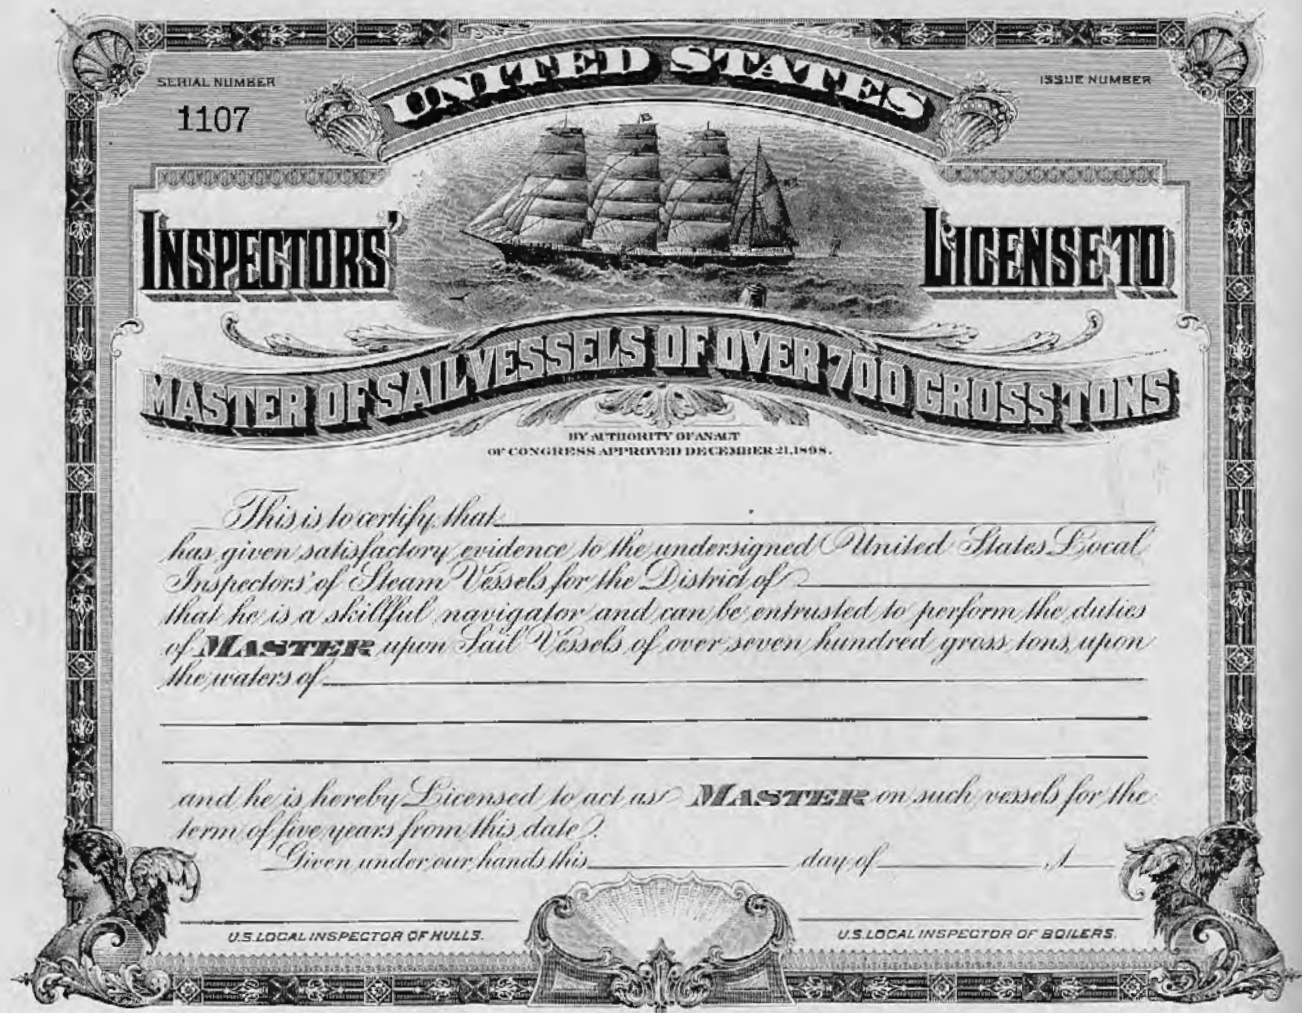 SERIAL NUMBER
1107
UNITED STATES
ISSUE NUMBER
INSPECTORS' LICENSE TO
MASTER OF SAIL VESSELS OF OVER 700 GROSS TONS
BY AUTHORITY OF AN ACT
OF CONGRESS APPROVED DECEMBER 21, 1898.
This is to certify that
has given satisfactory evidence to the undersigned United States Local
Inspectors of Steam Vessels for the District of
that he is a skillful navigator and can be entrusted to perform the duties
of MASTER upon Sail Vessels of over seven hundred gross tons, upon
the waters of
and he is hereby Licensed to act as MASTER on such vessels for the
term of five years from this date.
Given under our hands this day of , 1
U.S. LOCAL INSPECTOR OF HULLS.
U.S. LOCAL INSPECTOR OF BOILERS.